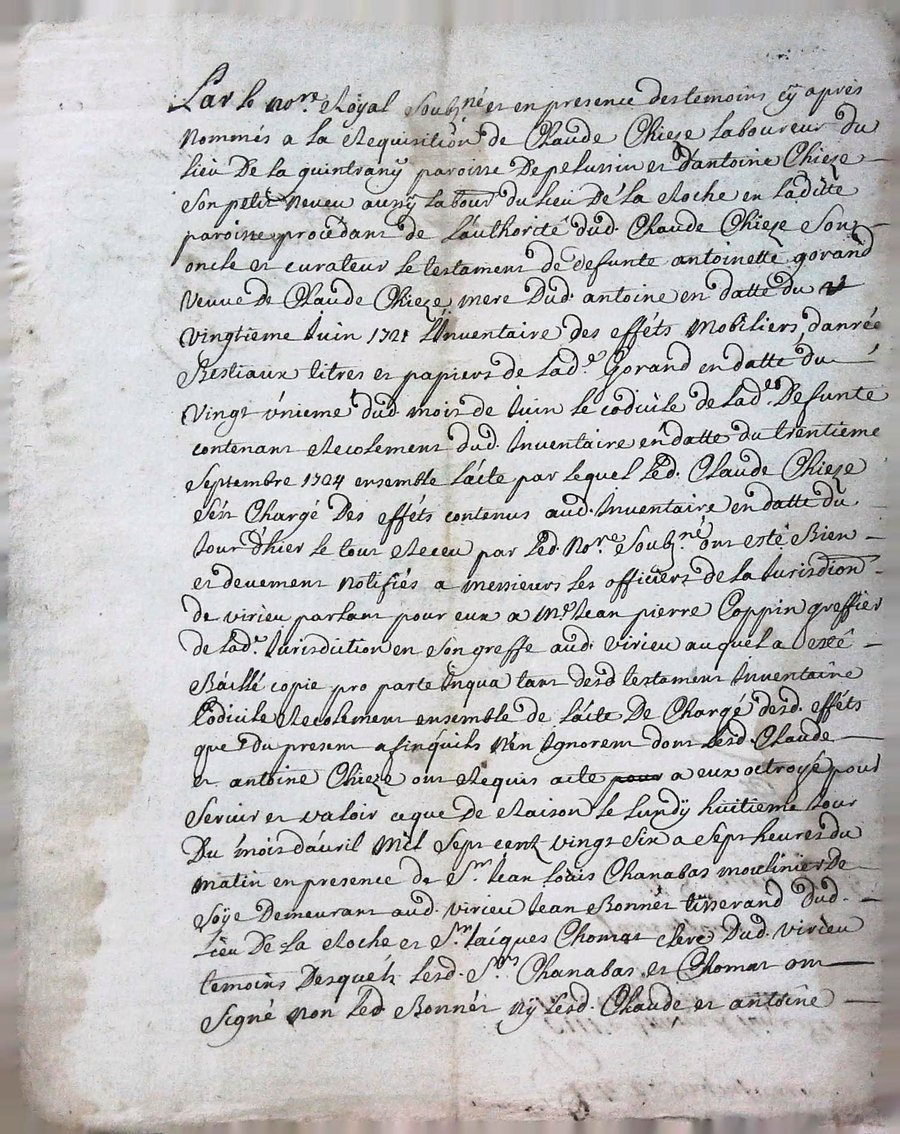 Par le no.re Royal Soubz.né et en presence des temoins cy après
Nommés a la Requisition de Claude Chieze Laboureur du
Lieu De la quintrany paroisse De pelussin et d'antoine Chieze
Son petit Neveu aussy Labour.r du Lieu De la Roche en Laditte
paroisse procédant de L'authorité dud. Claude Chieze Son
oncle et curateur Le testament de defunte antoinette gorand
Veuve de Claude Chieze mere Dud. antoine en datte du
Vingtieme Juin 1721 L'Inventaire des efféts Mobiliers, danrée
Bestiaux titres et papiers de Lad.e Gorand en datte du
Vingt vnieme dud. mois de Juin le codicile de Lad.e Defunte
contenant Recolement dud. Inventaire en datte du trentieme
Septembre 1724 ensemble L'acte par lequel Led. Claude Chieze
S'est Chargé Des efféts contenus aud. Inventaire en datte du
Jour d'hier le tout Receu par Led. No.re Soubz.né ont esté Bien
et deuement Notifiés a messieurs les officiers de la Jurisdion
de virieu parlant pour eux a M.e Jean pierre Coppin greffier
de Lad.e Jurisdiction en Son greffe aud. virieu auquel a esté
Baillé copie pro parte In qua tant desd testament Inventaire
Codicile Recolement ensemble de L'acte De Charge desd. efféts
que Du present afinquils N'en Ignorent dont Lesd. Claude
et antoine Chieze ont Requis acte pour a eux octroyé pour
Servir et valoir ceque de Raison le Lundy huitieme Jour
Du mois d'auril Mil Sept centz vingt Six a Sept heures du
Matin en presence de S.r Jean Loüis Chanabas moulinier De
Soÿe Demeurant aud. virieu Jean Bonnét tisserand Dud.
Lieu De La Roche et S.r Jacques Chomat clerc Dud. virieu
temoins Desquéls Lesd. S.rs Chanabas et Chomat ont
Signé Non Led. Bonnét Ny Lesd. Claude et antoine